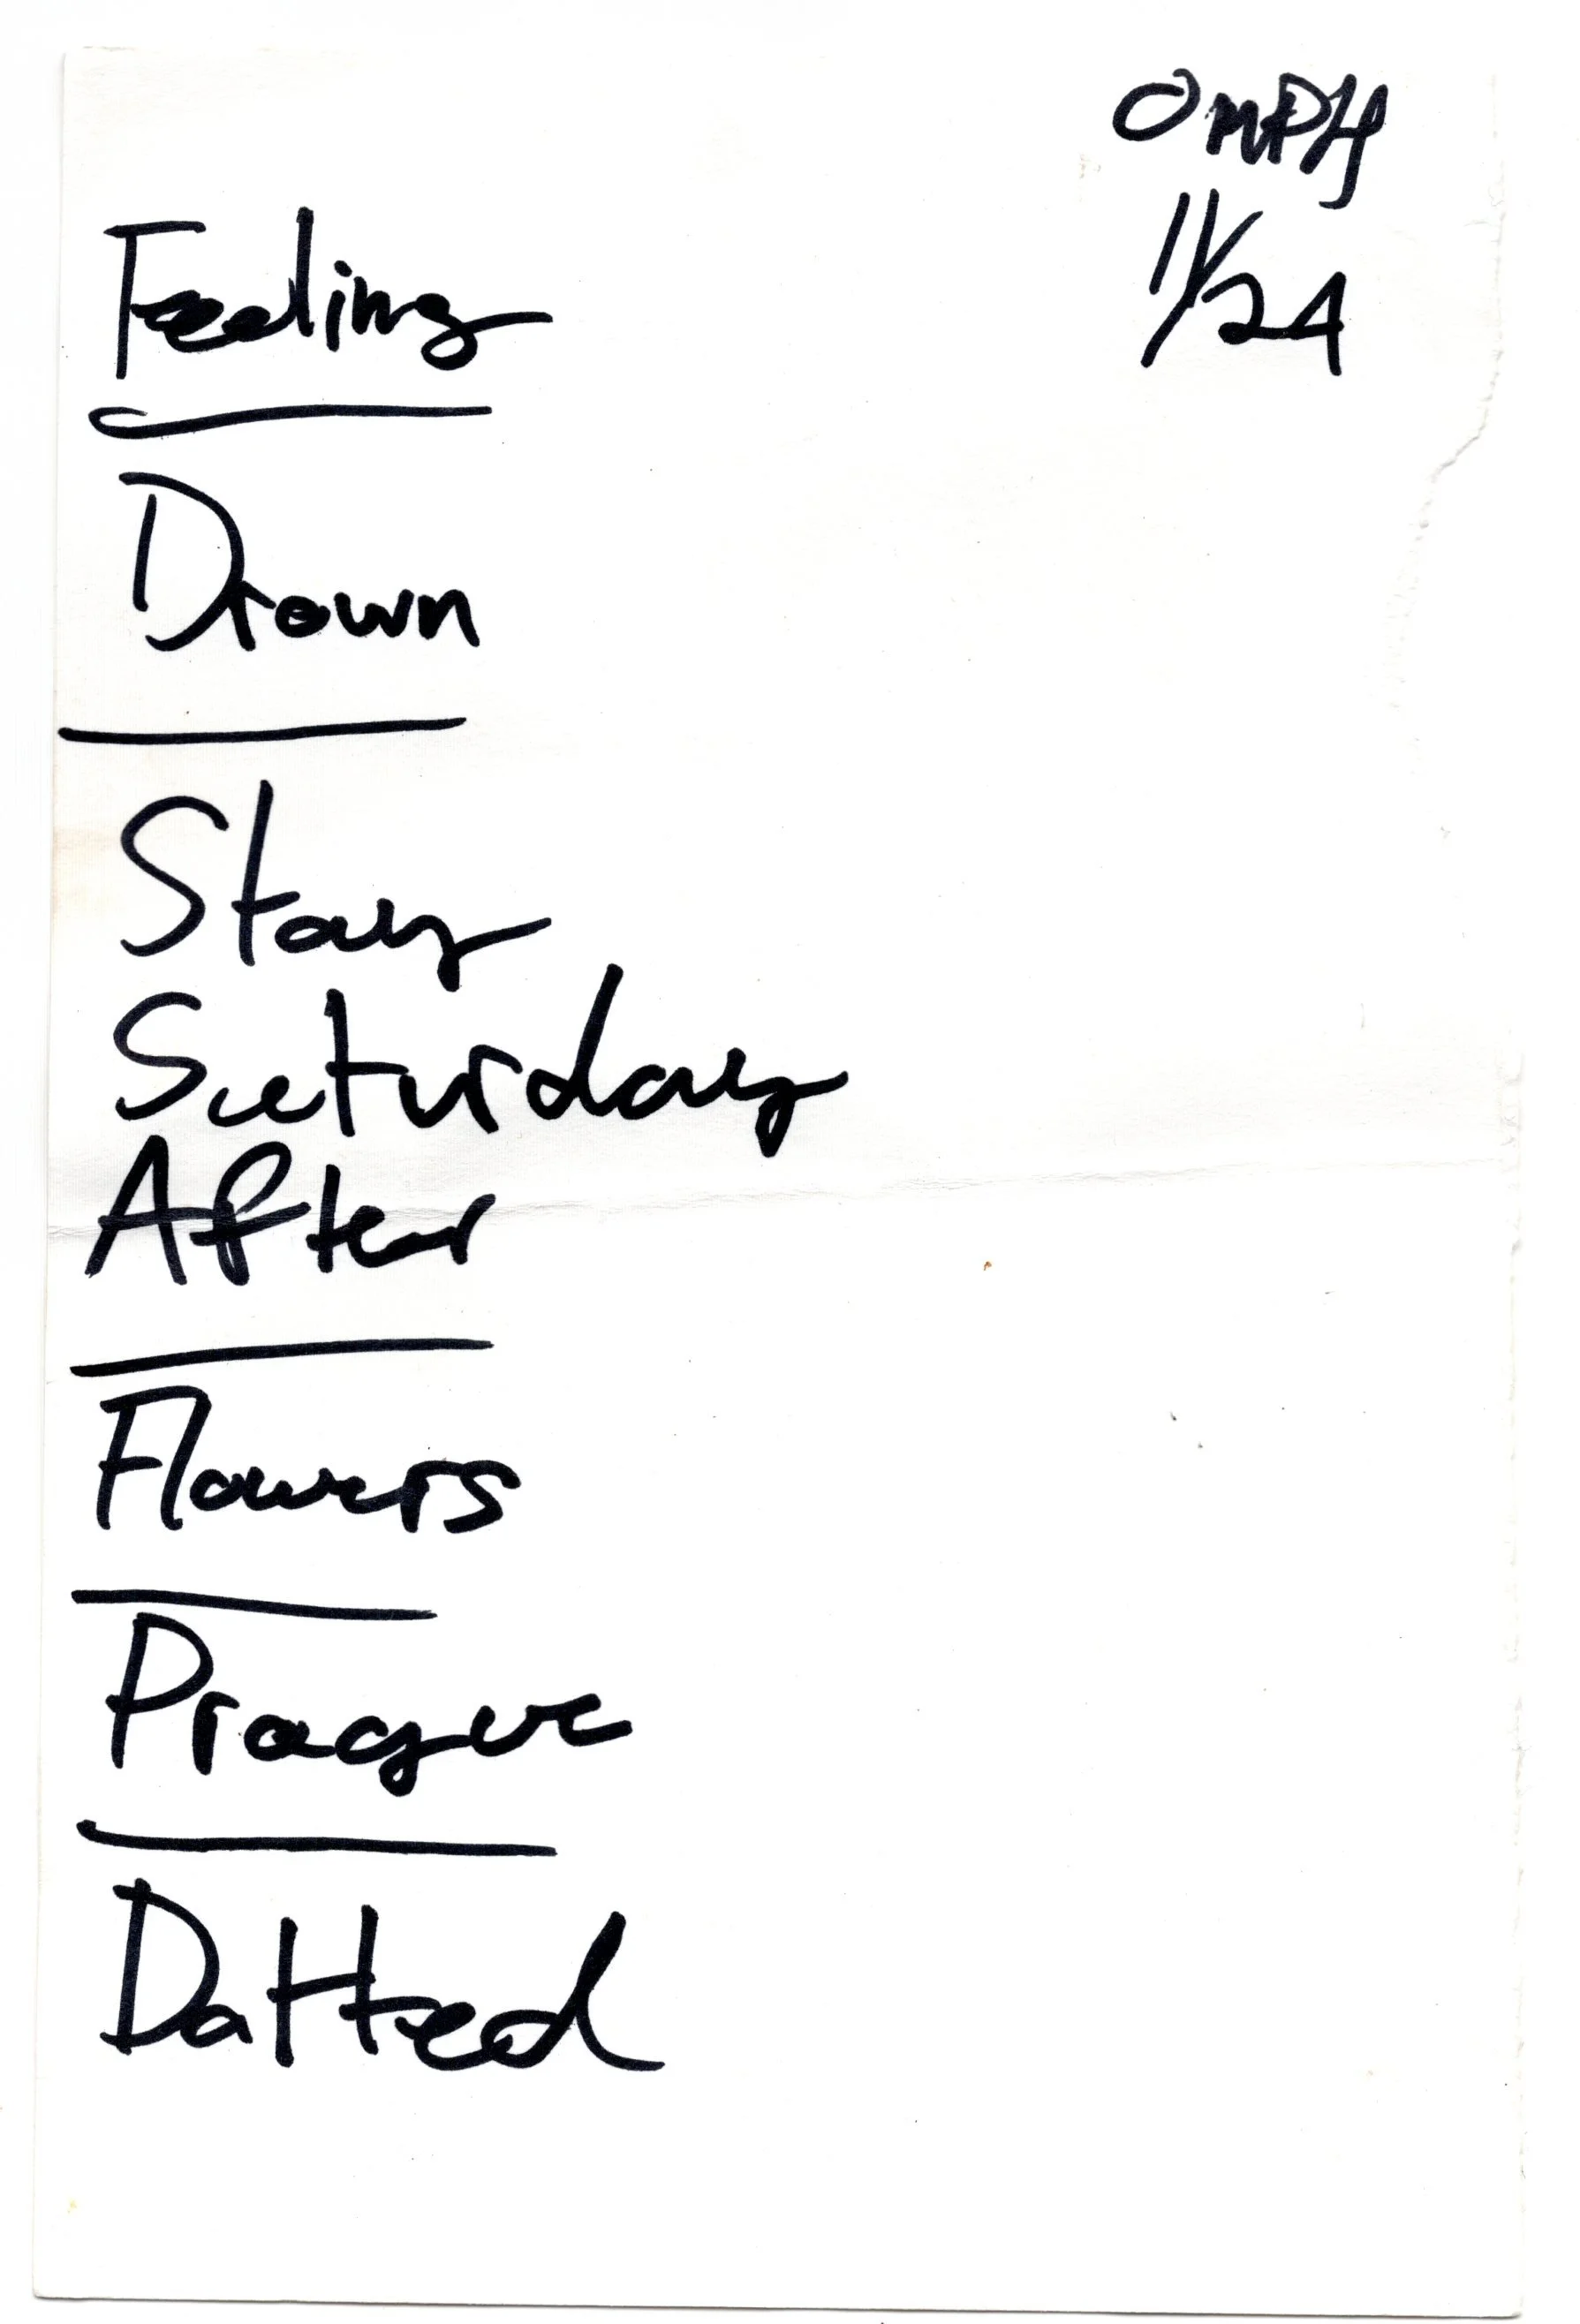 OMPH
11/24
Feeling
Drown
Stay
Saturday
After
Flowers
Prague
Datted